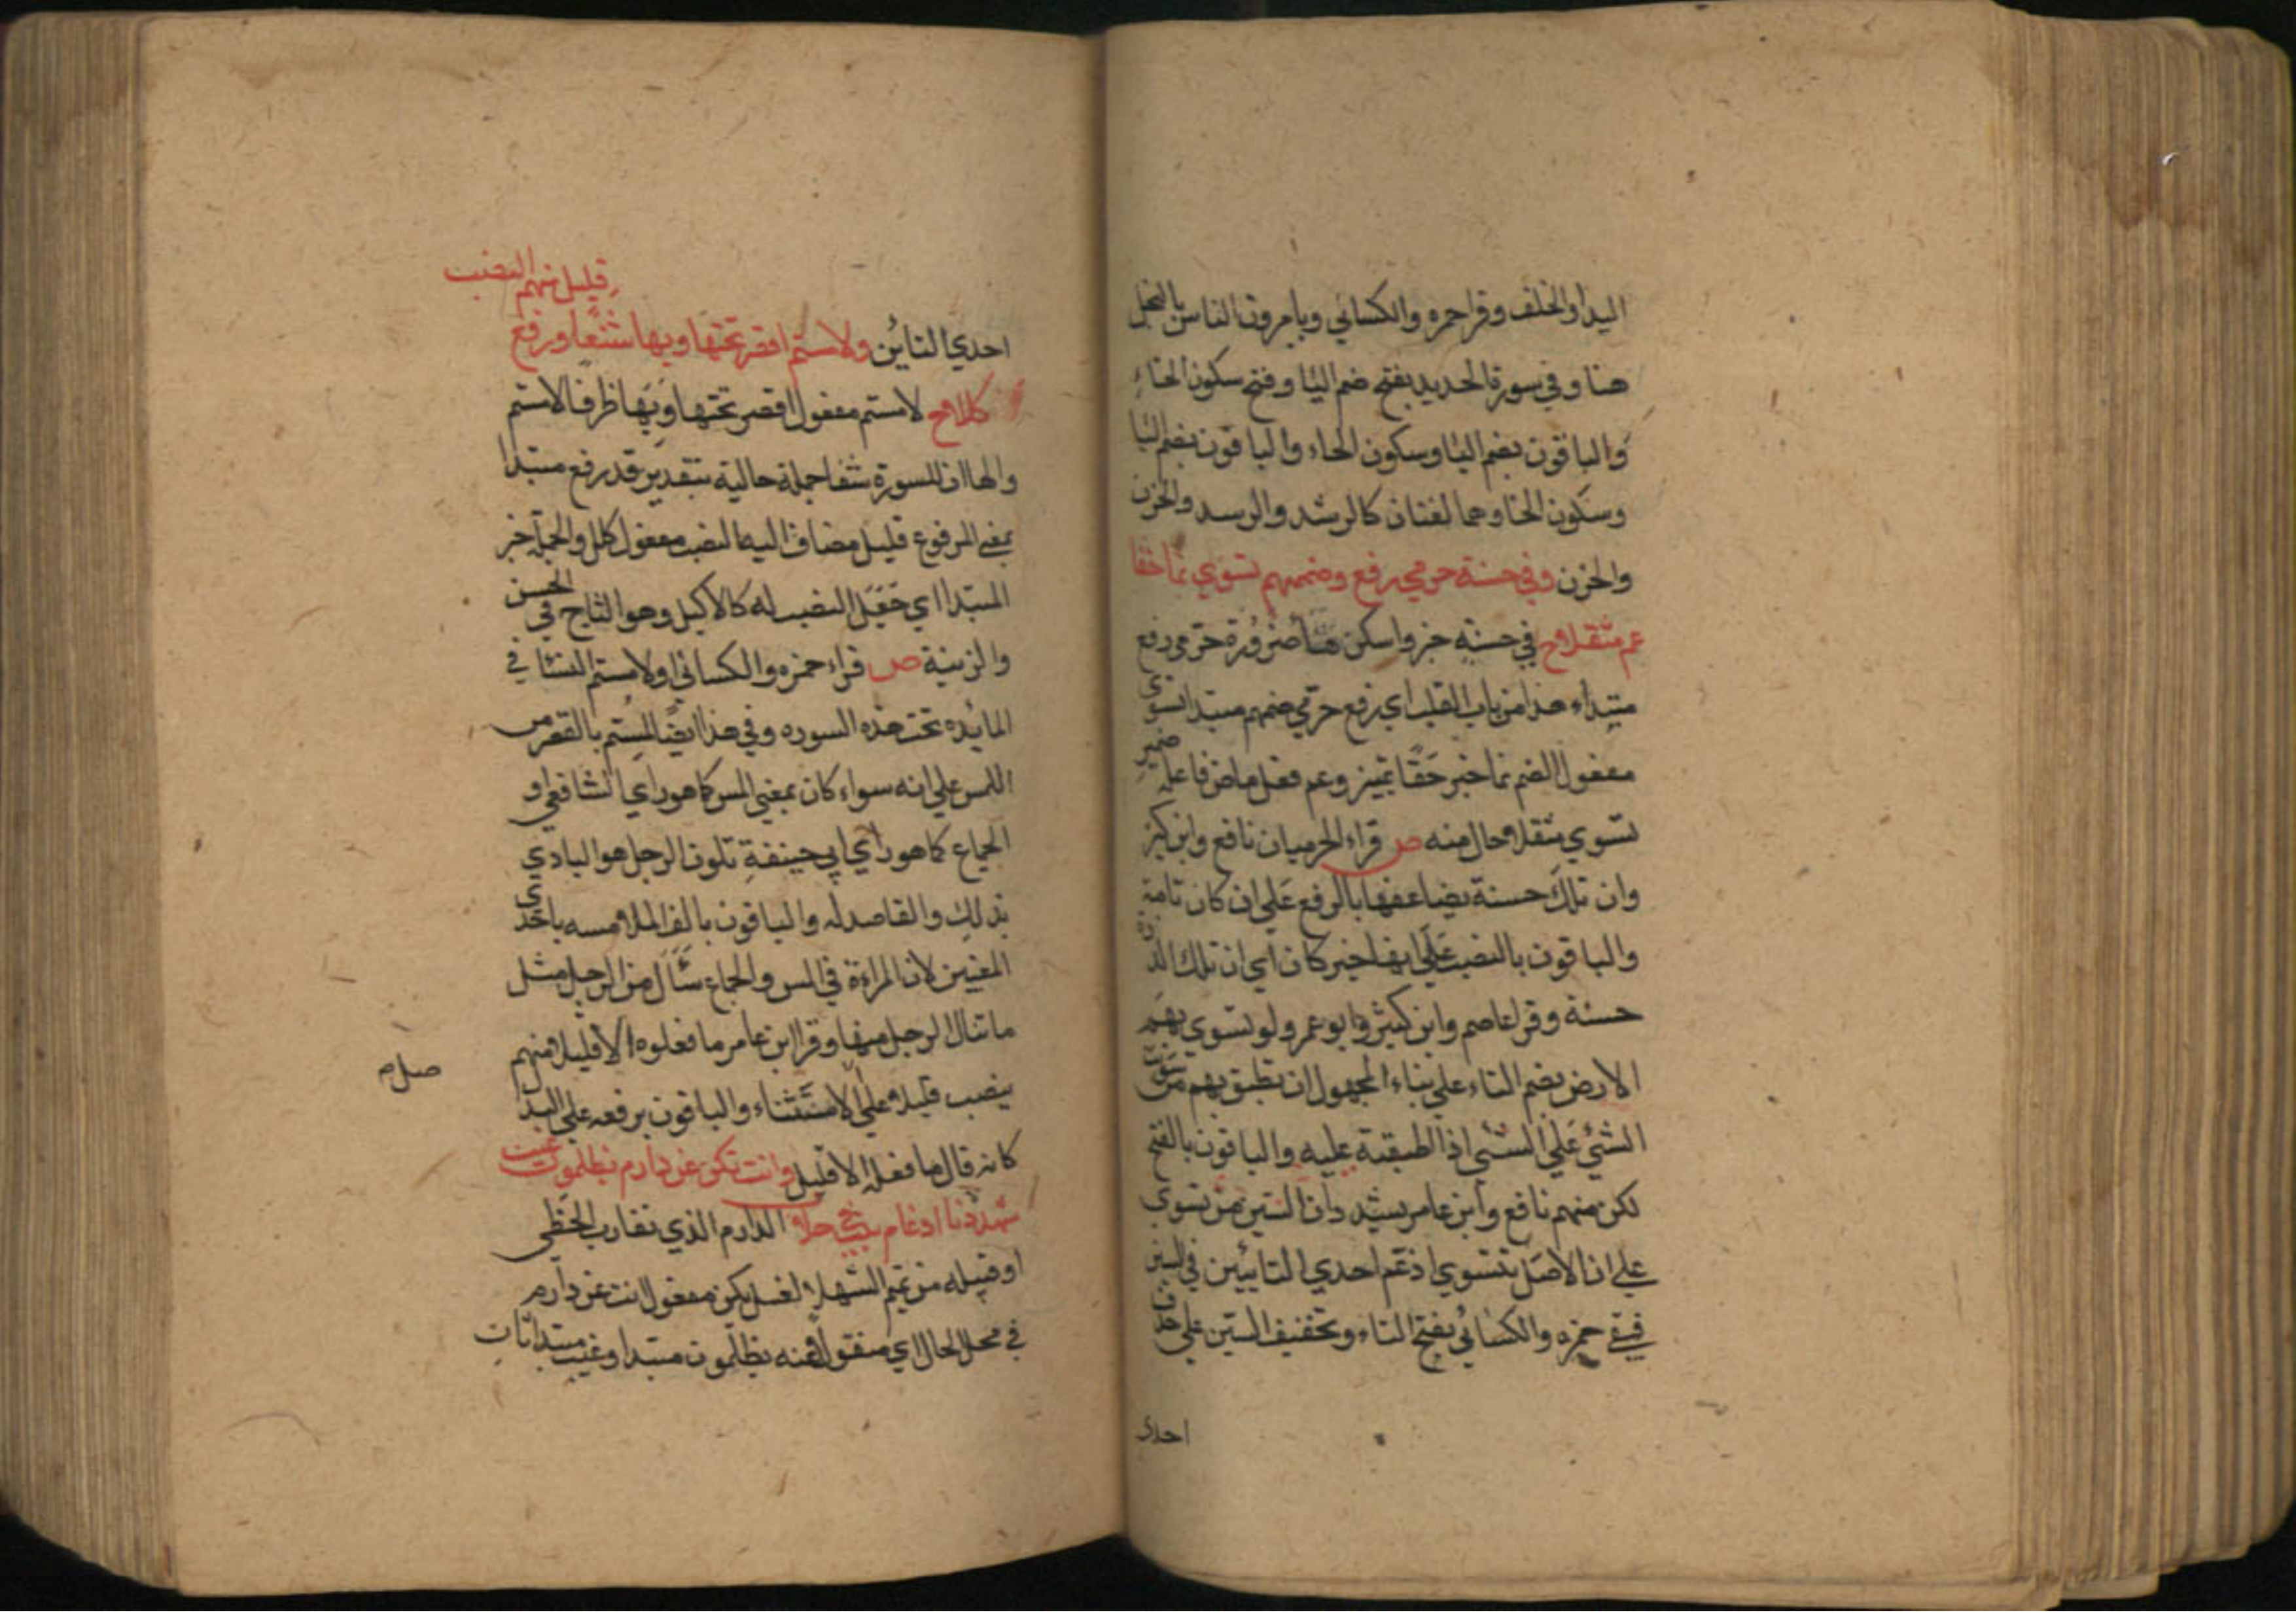 اليدا والخلف وقرا حمزه والكسائي ويامرون الناس بالبخل
هنا وفي سورة الحديد بفتح ضم اليا وفتح سكون الخاء
والباقون بضم اليا وسكون الخاء والباقون بضم اليا
وسكون الخا وهما لغتان كالرشد والرسد والحزن
والحزن وفي حسنة حرمي رفع وضمهم تسوي نما حقا
عم مثقلا ح في حسنة خبر واسكن هنا ضرورة حرمي رفع
مبتداء هذا من باب القلب اي رفع حرمي ضمهم مبتدا تسوي
مفعول الضم نما خبر حقا تميز وعم فعل ماض فاعله ضمير
تسوي مثقلا حال منه ص قراء الحرميان نافع وابن كثير
وان تك حسنة يضاعفها بالرفع علي ان كان تامة
والباقون بالنصب علي انها خبر كان اي ان تلك الذرة
حسنة وقرا عاصم وابن كثير وابو عمر ولو تسوي بهم
الارض بضم التاء علي بناء المجهول ان تطبق بهم من سويت
الشئ علي الشئ اذا اطبقته عليه والباقون بالفتح
لكن منهم نافع وابن عامر يشددان السين من تسوي
علي ان الاصل تتسوي ادغم احدي التايين في السين
فبقي حمزه والكسائي بفتح التاء وتخفيف السين علي حذف
احدي
قليل منهم النصب
احدي التايين ولامستم اقصر تحتها وبها شفا ورفع
كللا ح لامستم مفعول اقصر تحتها وبها ظرفا لامستم
والهاان للسورة شفا جملة حالية بتقدير قد رفع مبتدا
بمعني المرفوع قليل مضاف اليه النصب مفعول كلل والجملة خبر
المبتدا اي جعل النصب له كالاكيل وهو التاج في الحسن
والزينة ص قراء حمزه والكسائي اولامستم النسا في
المايده تحت هذه السوره وفي هذا ايضا لمستم بالقصر من
اللمس علي انه سواء كان بمعني المس كما هو راي الشافعي او
الجماع كما هو راي ابي حنيفة تلون الرجل هو البادي
بذلك والقاصد له والباقون بالف الملامسه باحدي
المعنيين لان المراءة في المس والجماع تنال من الرجل مثل
ما تنال الرجل منها وقرا ابن عامر ما فعلوه الا قليلا منهم
بنصب قليلا علي الاستثناء والباقون برفعه علي البدل
صلم
كانه قال ما فعله الا قليل وانث تكن عن دارم تظلمون غيب
شهد دنا ادغام بيت حلا الدارم الذي تقارب الخطي
او قبيله من تميم الشهد العسل يكن مفعول انث عن دارم
في محل الحال اي منقولا عنه تظلمون مبتدا وغيب مبتدا ثان